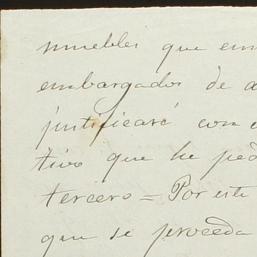 muebles que em
embargados de a
justificaré con
tivo que he ped
tercero = Por esti
que se proceda